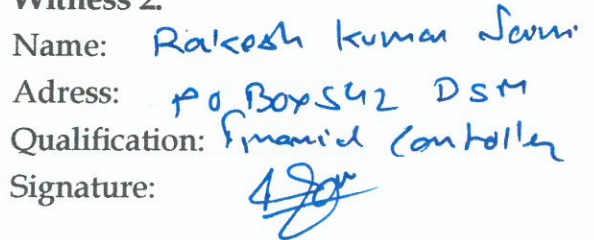 Witness 2.
Name: Rakesh Kumar
Adress: PO Box 542 DSM
Qualification: Financial Controller
Signature: